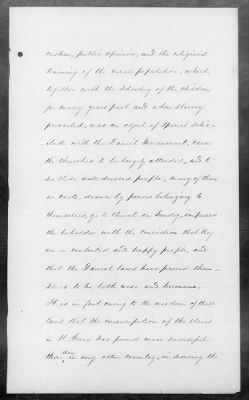 custom, public opinion, and the religious
training of the rural population, which,
together with the schooling of the children
for many years past, and when slavery
prevailed, was an object of special solic-
itude with the Danish Government, cause
the Churches to be largely attended, and to
see these well dressed people, many of them
in carts, drawn by ponies belonging to
themselves, go to Church on Sunday, impresses
the beholder with the conviction that they
are a contented and happy people, and
that the Danish laws have proved them-
selves to be both wise and humane.
It is in fact owing to the wisdom of these
laws that the emancipation of the slaves
in St Croix has proved more successful
than in any other country, in securing the